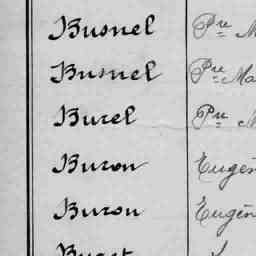 Busnel Pre M
Busnel Pre Ma
Burel Pre M
Buron Eugèn
Buron Eugèn